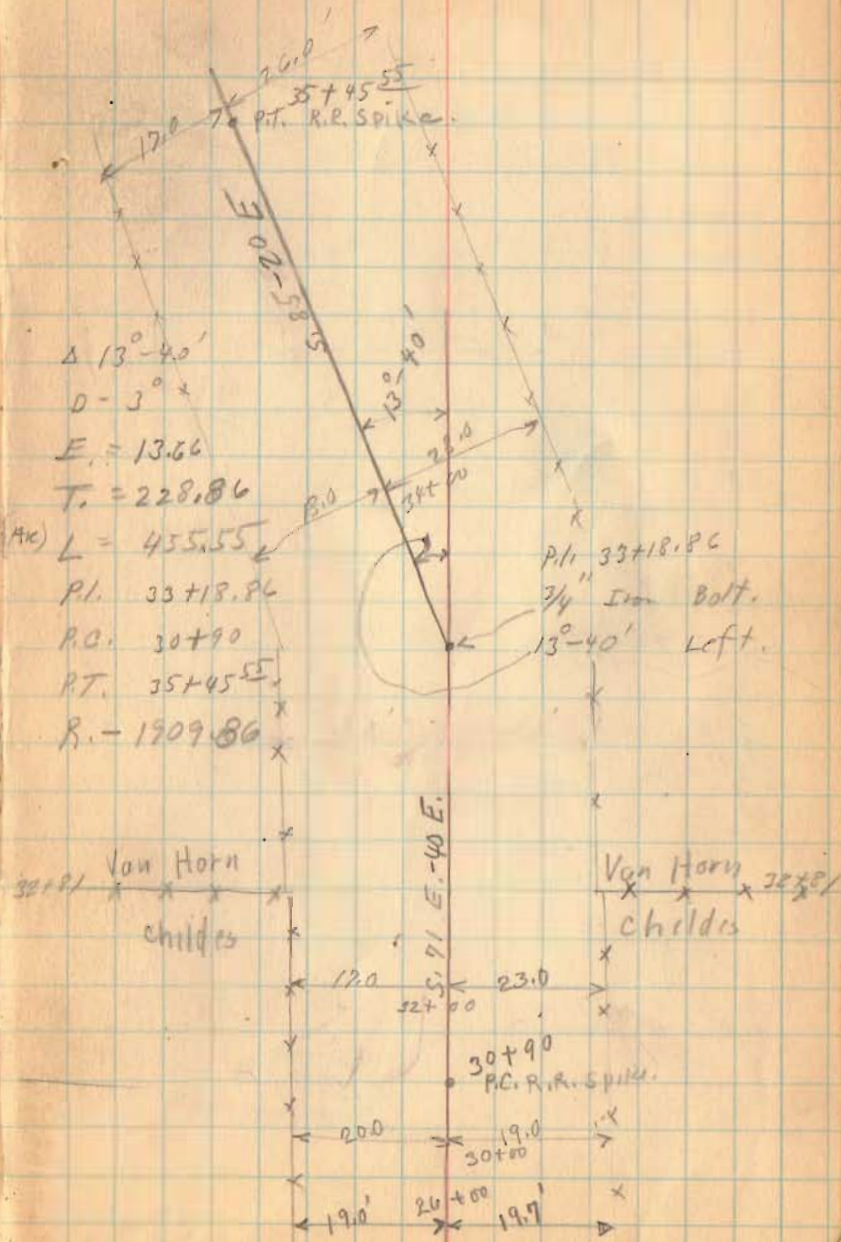 26.0'
35+45 55
17.0
P.T. R.R. Spike.
S. 85-20 E
13°-40'
Δ 13°-40'
D - 3°
E. = 13.66
T. = 228.86
(Arc) L = 455.55
P.I. 33+18.86
P.C. 30+90
P.T. 35+45 55
R. - 1909.86
34+00
P.I. 33+18.86
3/4" Iron Bolt.
13°-40' Left.
S. 71 E.-40 E.
32+81 Van Horn
Childes
Van Horn 32+81
Childes
17.0
23.0
32+00
30+90
P.C. R.R. Spike.
20.0
19.0
30+00
26+00
19.0'
19.7'